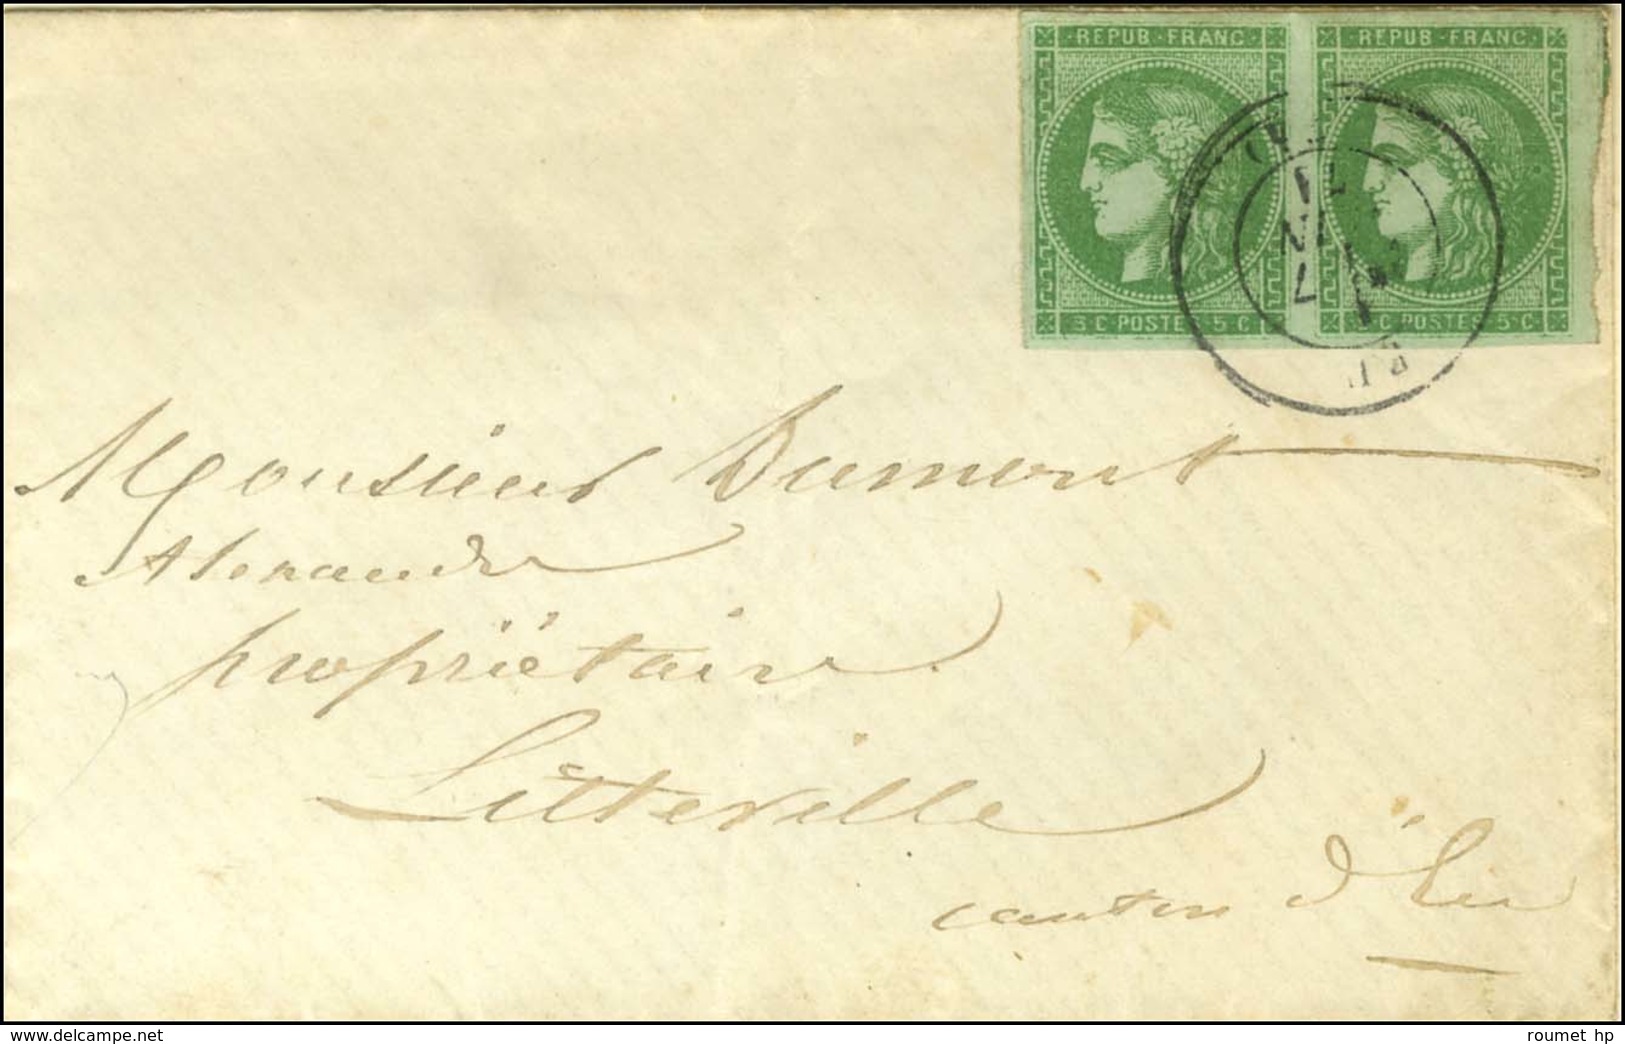 REPUB·FRANC· REPUB·FRANC·
5 C POSTES 5 C 5 C POSTES 5 C
71
Monsieur Dumont
Alexandre
propriétaire
Litteville
canton d'Eu
www.delcampe.net
roumet hp